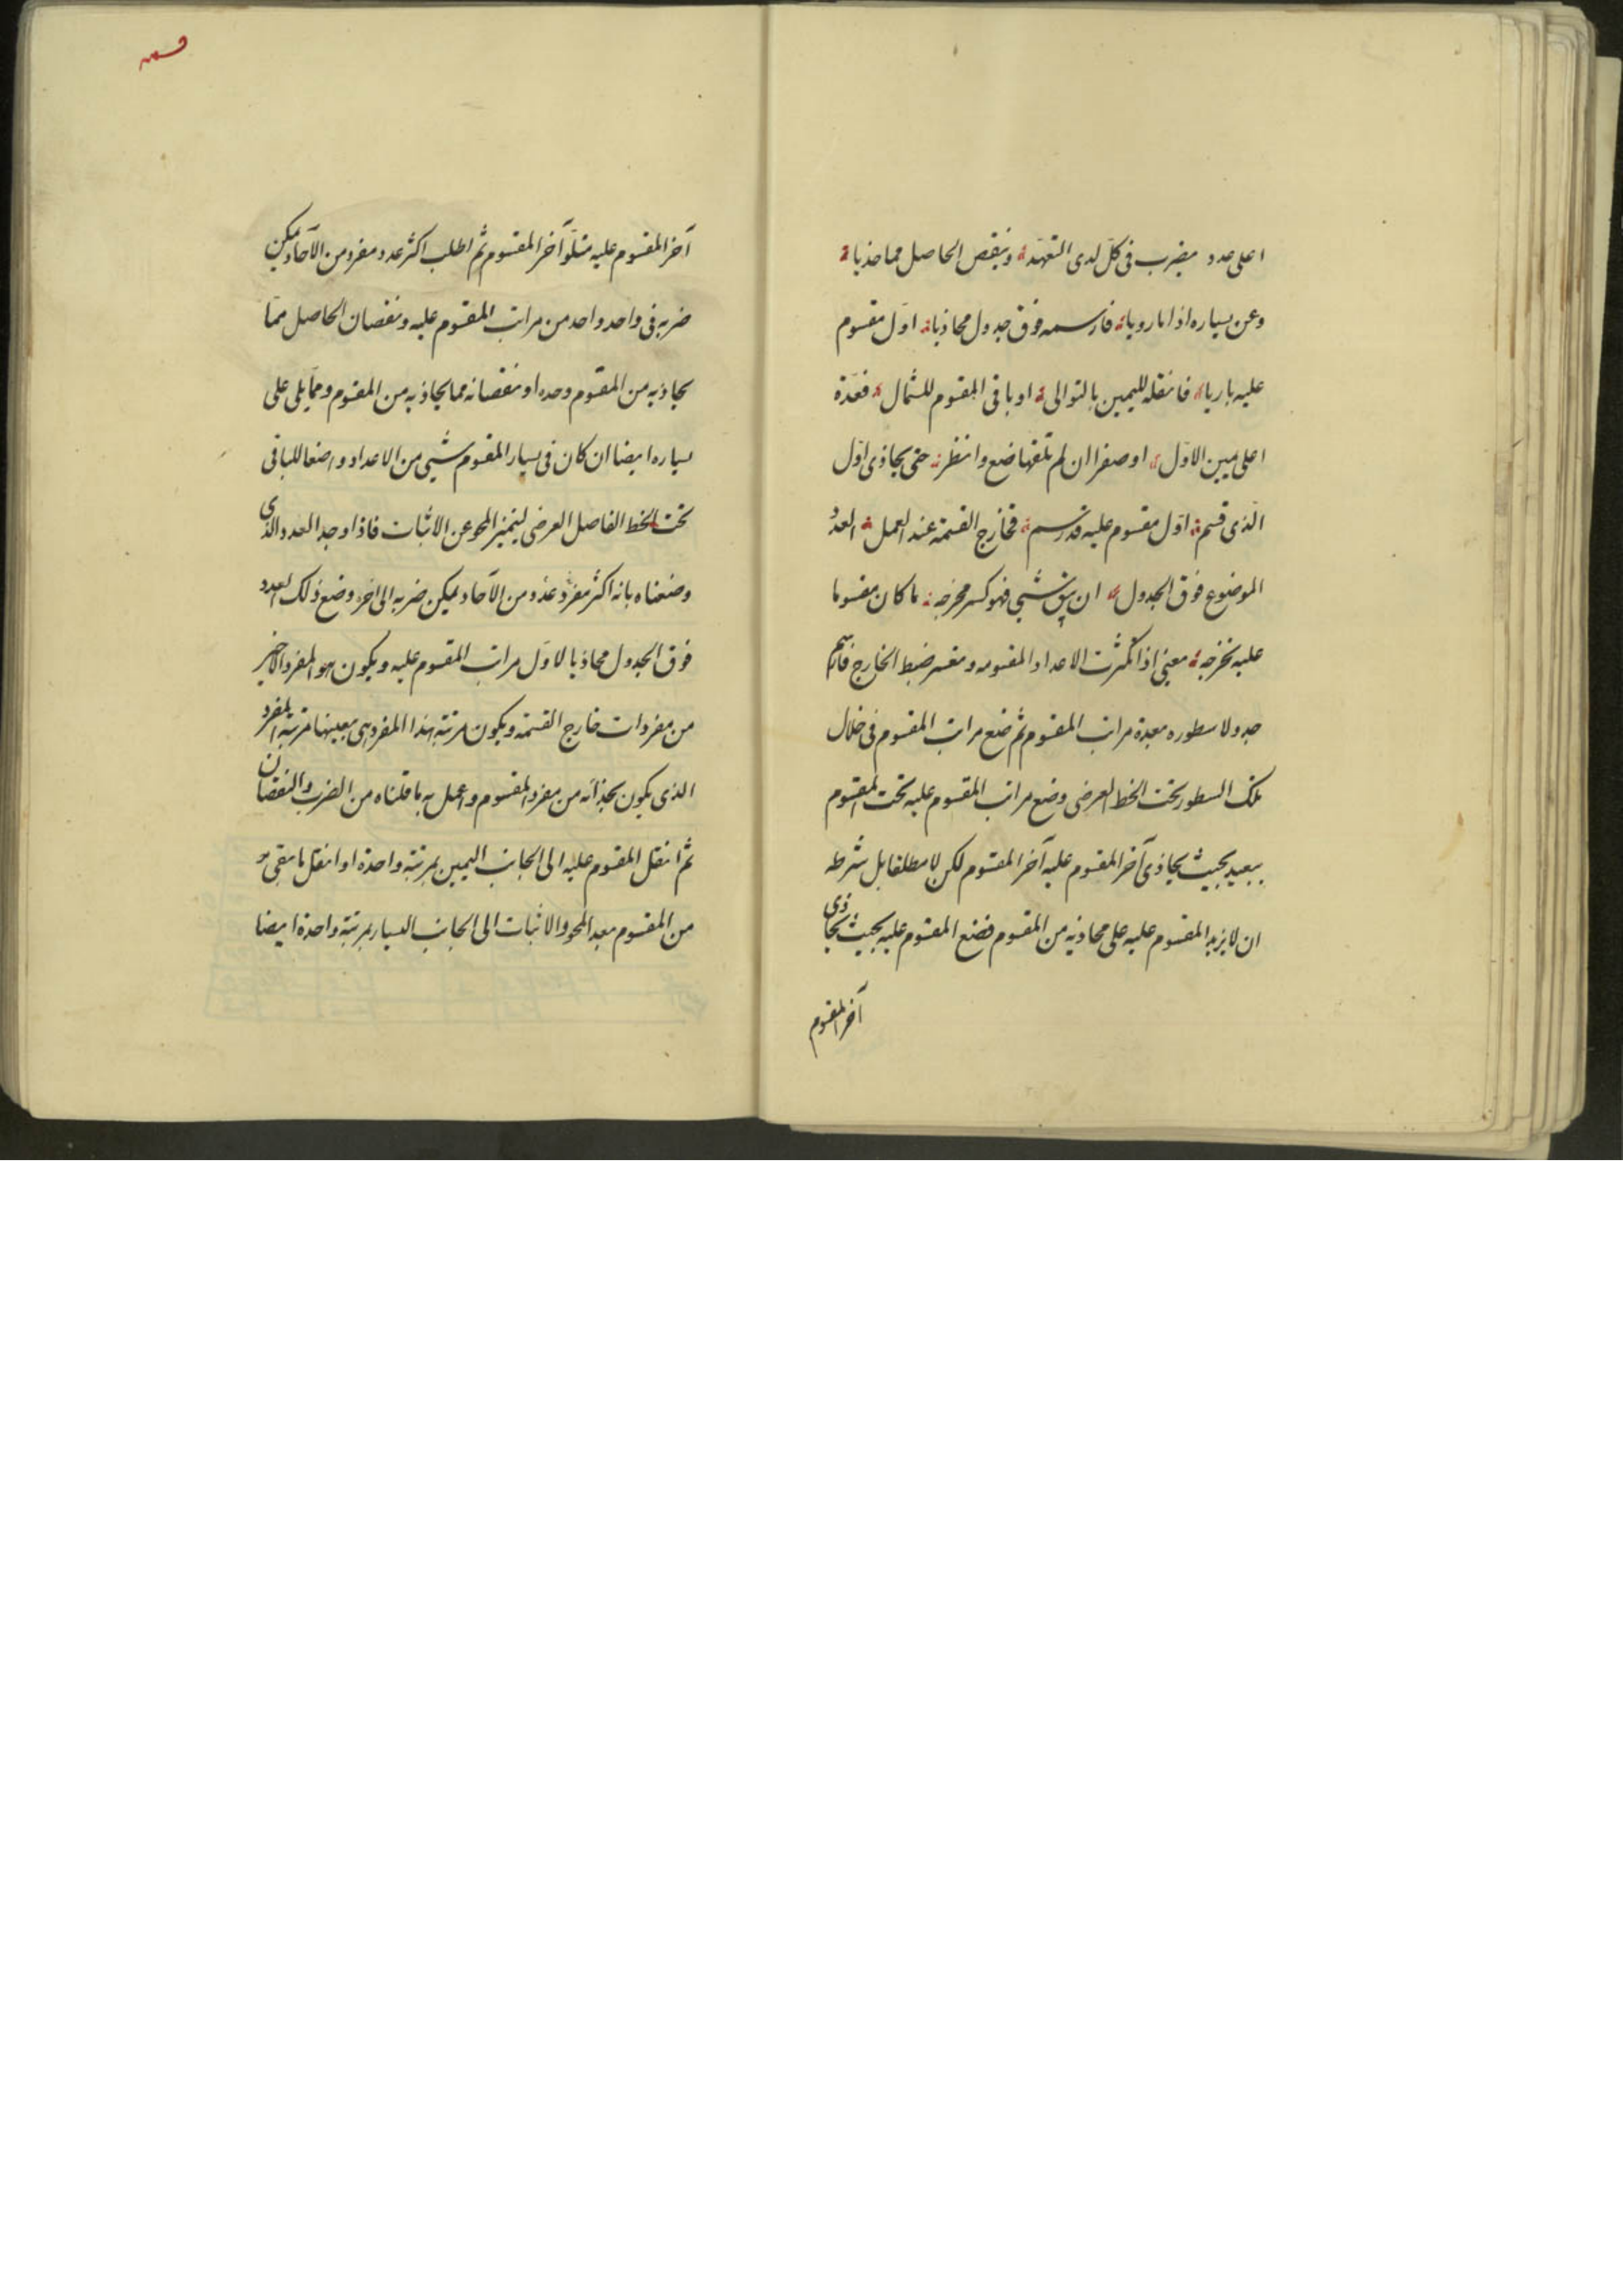 اعلى عدد يضرب فى كل لدى التعهد وينقص الحاصل مما حاذيا
وعن يساره اذا ما رويا فارسمه فوق جدول محاذيا اول مقسوم
عليه باريا فانقله لليمين بالتوالى او باقى المقسوم للشمال فعدّة
اعلى يمين الاوّل او صفرا ان لم تلقها ضع وانظر حتى يحاذى اوّل
الّذى قسم اوّل مقسوم عليه قد رسم فخارج القسمة عند العمل العدد
الموضوع فوق الجدول ان يبق شىء فهو كسر مخرجه ما كان مقسوما
عليه نخرجه يعنى اذا كثرت الاعداد المقسومه وتعسر ضبط الخارج فارسم
جدولا سطوره بعدة مراتب المقسوم ثم ضع مراتب المقسوم فى خلال
تلك السطور تحت الخط العرضى وضع مراتب المقسوم عليه تحت المقسوم
ببعيد بحيث يحاذى آخر المقسوم عليه آخر المقسوم لكن لا مطلقا بل شرطه
ان لا يزيد المقسوم عليه على محاذيه من المقسوم فضع المقسوم عليه بحيث يحاذى
آخر المقسوم
قسمه
آخر المقسوم عليه متلوّ آخر المقسوم ثم اطلب اكثر عدد مفرد من الآحاد يمكن
ضربه فى واحد واحد من مراتب المقسوم عليه ونقصان الحاصل ممّا
يحاذيه من المقسوم وحده او نقصانه مما يحاذيه من المقسوم وممّا يلى على
يساره ايضا ان كان فى يسار المقسوم شىء من الاعداد واضعا للباقى
تحت الخط الفاصل العرضى ليتميز المحو عن الاثبات فاذا وجد العدد الذى
وصفناه بانه اكثر مفرد عدد من الآحاد يمكن ضربه الى آخره وضع ذلك العدد
فوق الجدول محاذيا لاوّل مراتب المقسوم عليه ويكون هو المفرد الاخير
من مفردات خارج القسمة ويكون مرتبة هذا المفرد هى بعينها مرتبة المفرد
الذى يكون بحذائه من مفرد المقسوم واعمل به ما قلناه من الضرب والنقصان
ثم انقل المقسوم عليه الى الجانب اليمين بمرتبة واحدة او انقل ما بقى
من المقسوم بعد المحو والاثبات الى الجانب اليسار بمرتبة واحدة ايضا